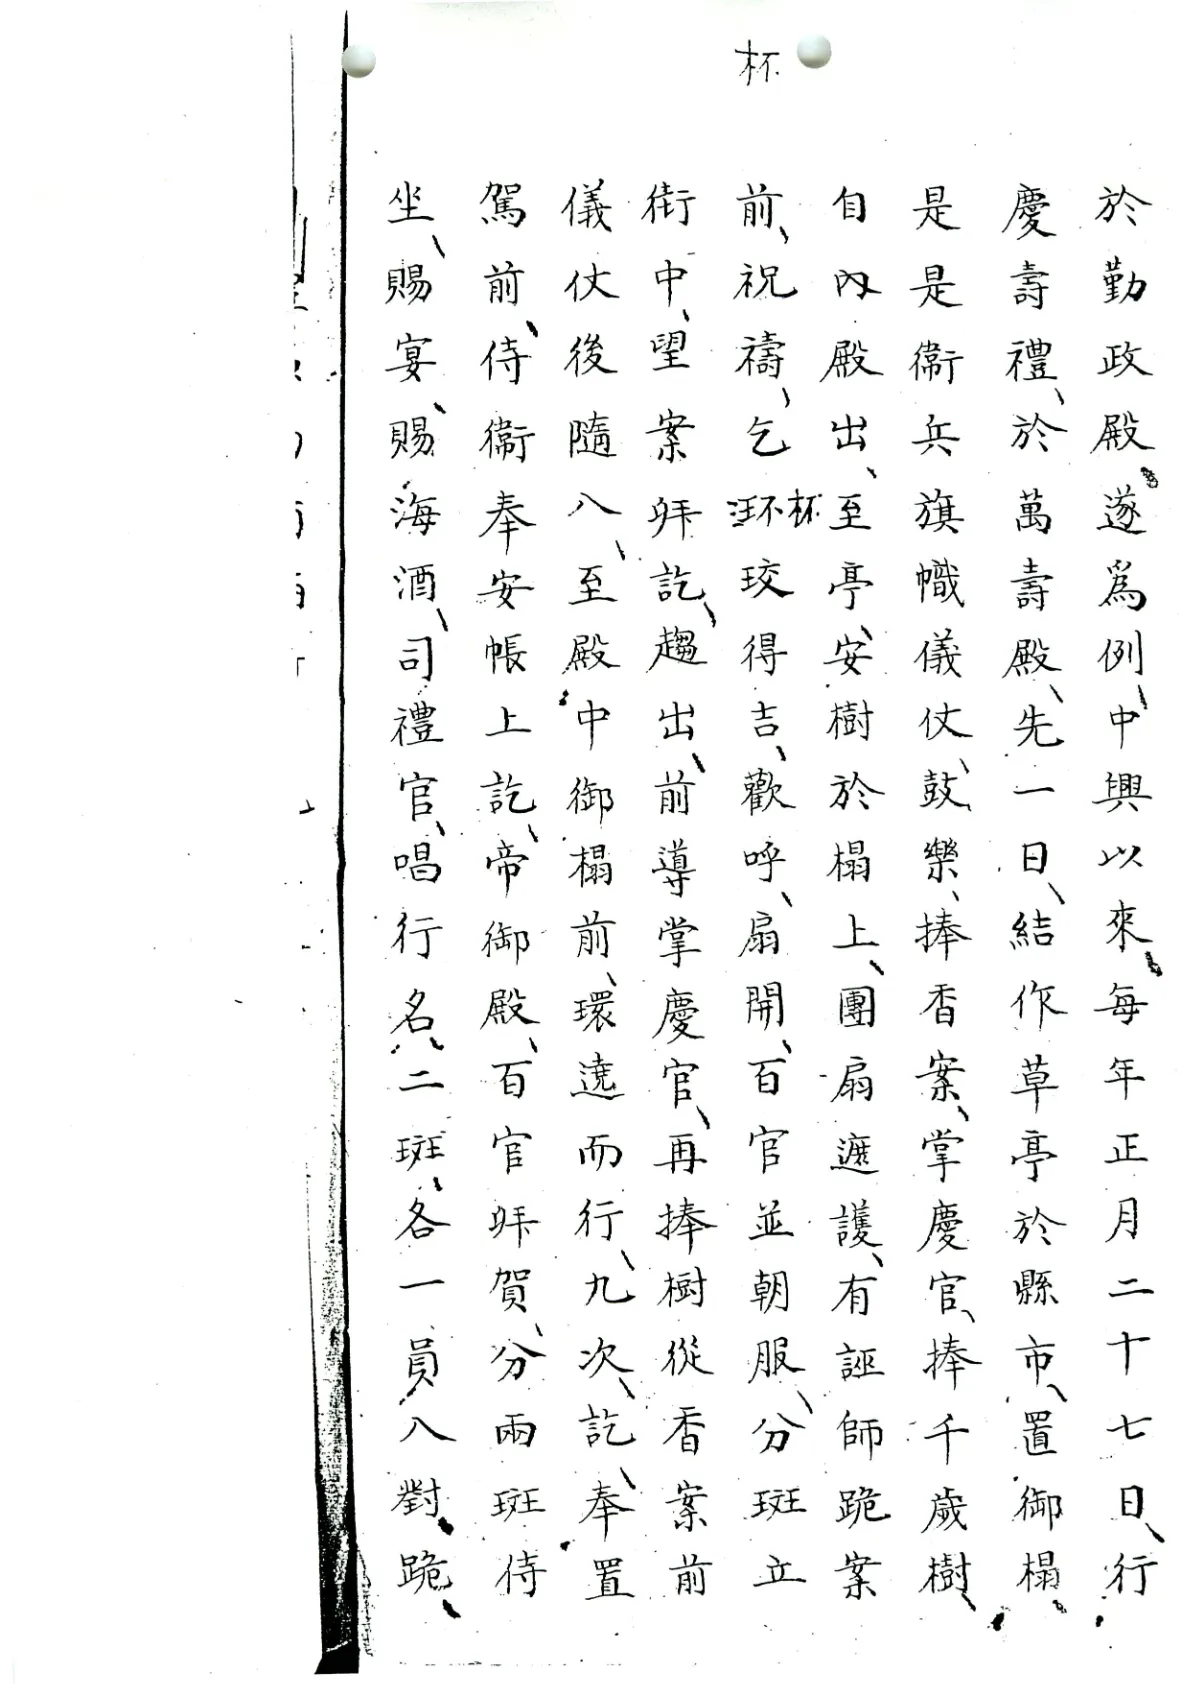 杯
於勤政殿遂爲例、中興以來、每年正月二十七日、行
慶壽禮、於萬壽殿、先一日、結作草亭於縣市、置御榻、
是是衞兵旗幟儀仗、鼓樂、捧香案、掌慶官、捧千歲樹、
自內殿出、至亭、安樹於榻上、團扇遮護、有誣師跪案
前、祝禱、乞注环杯珓得吉、歡呼、扇開、百官並朝服、分班立
街中、望案拜訖、趨出、前導掌慶官、再捧樹從香案前
儀仗後隨入、至殿中御榻前、環遶而行、九次、訖、奉置
駕前、侍衞奉安帳上訖、帝御殿、百官拜賀、分兩班侍
坐、賜宴、賜海酒、司禮官、唱行名、二班、各一員、入對、跪、